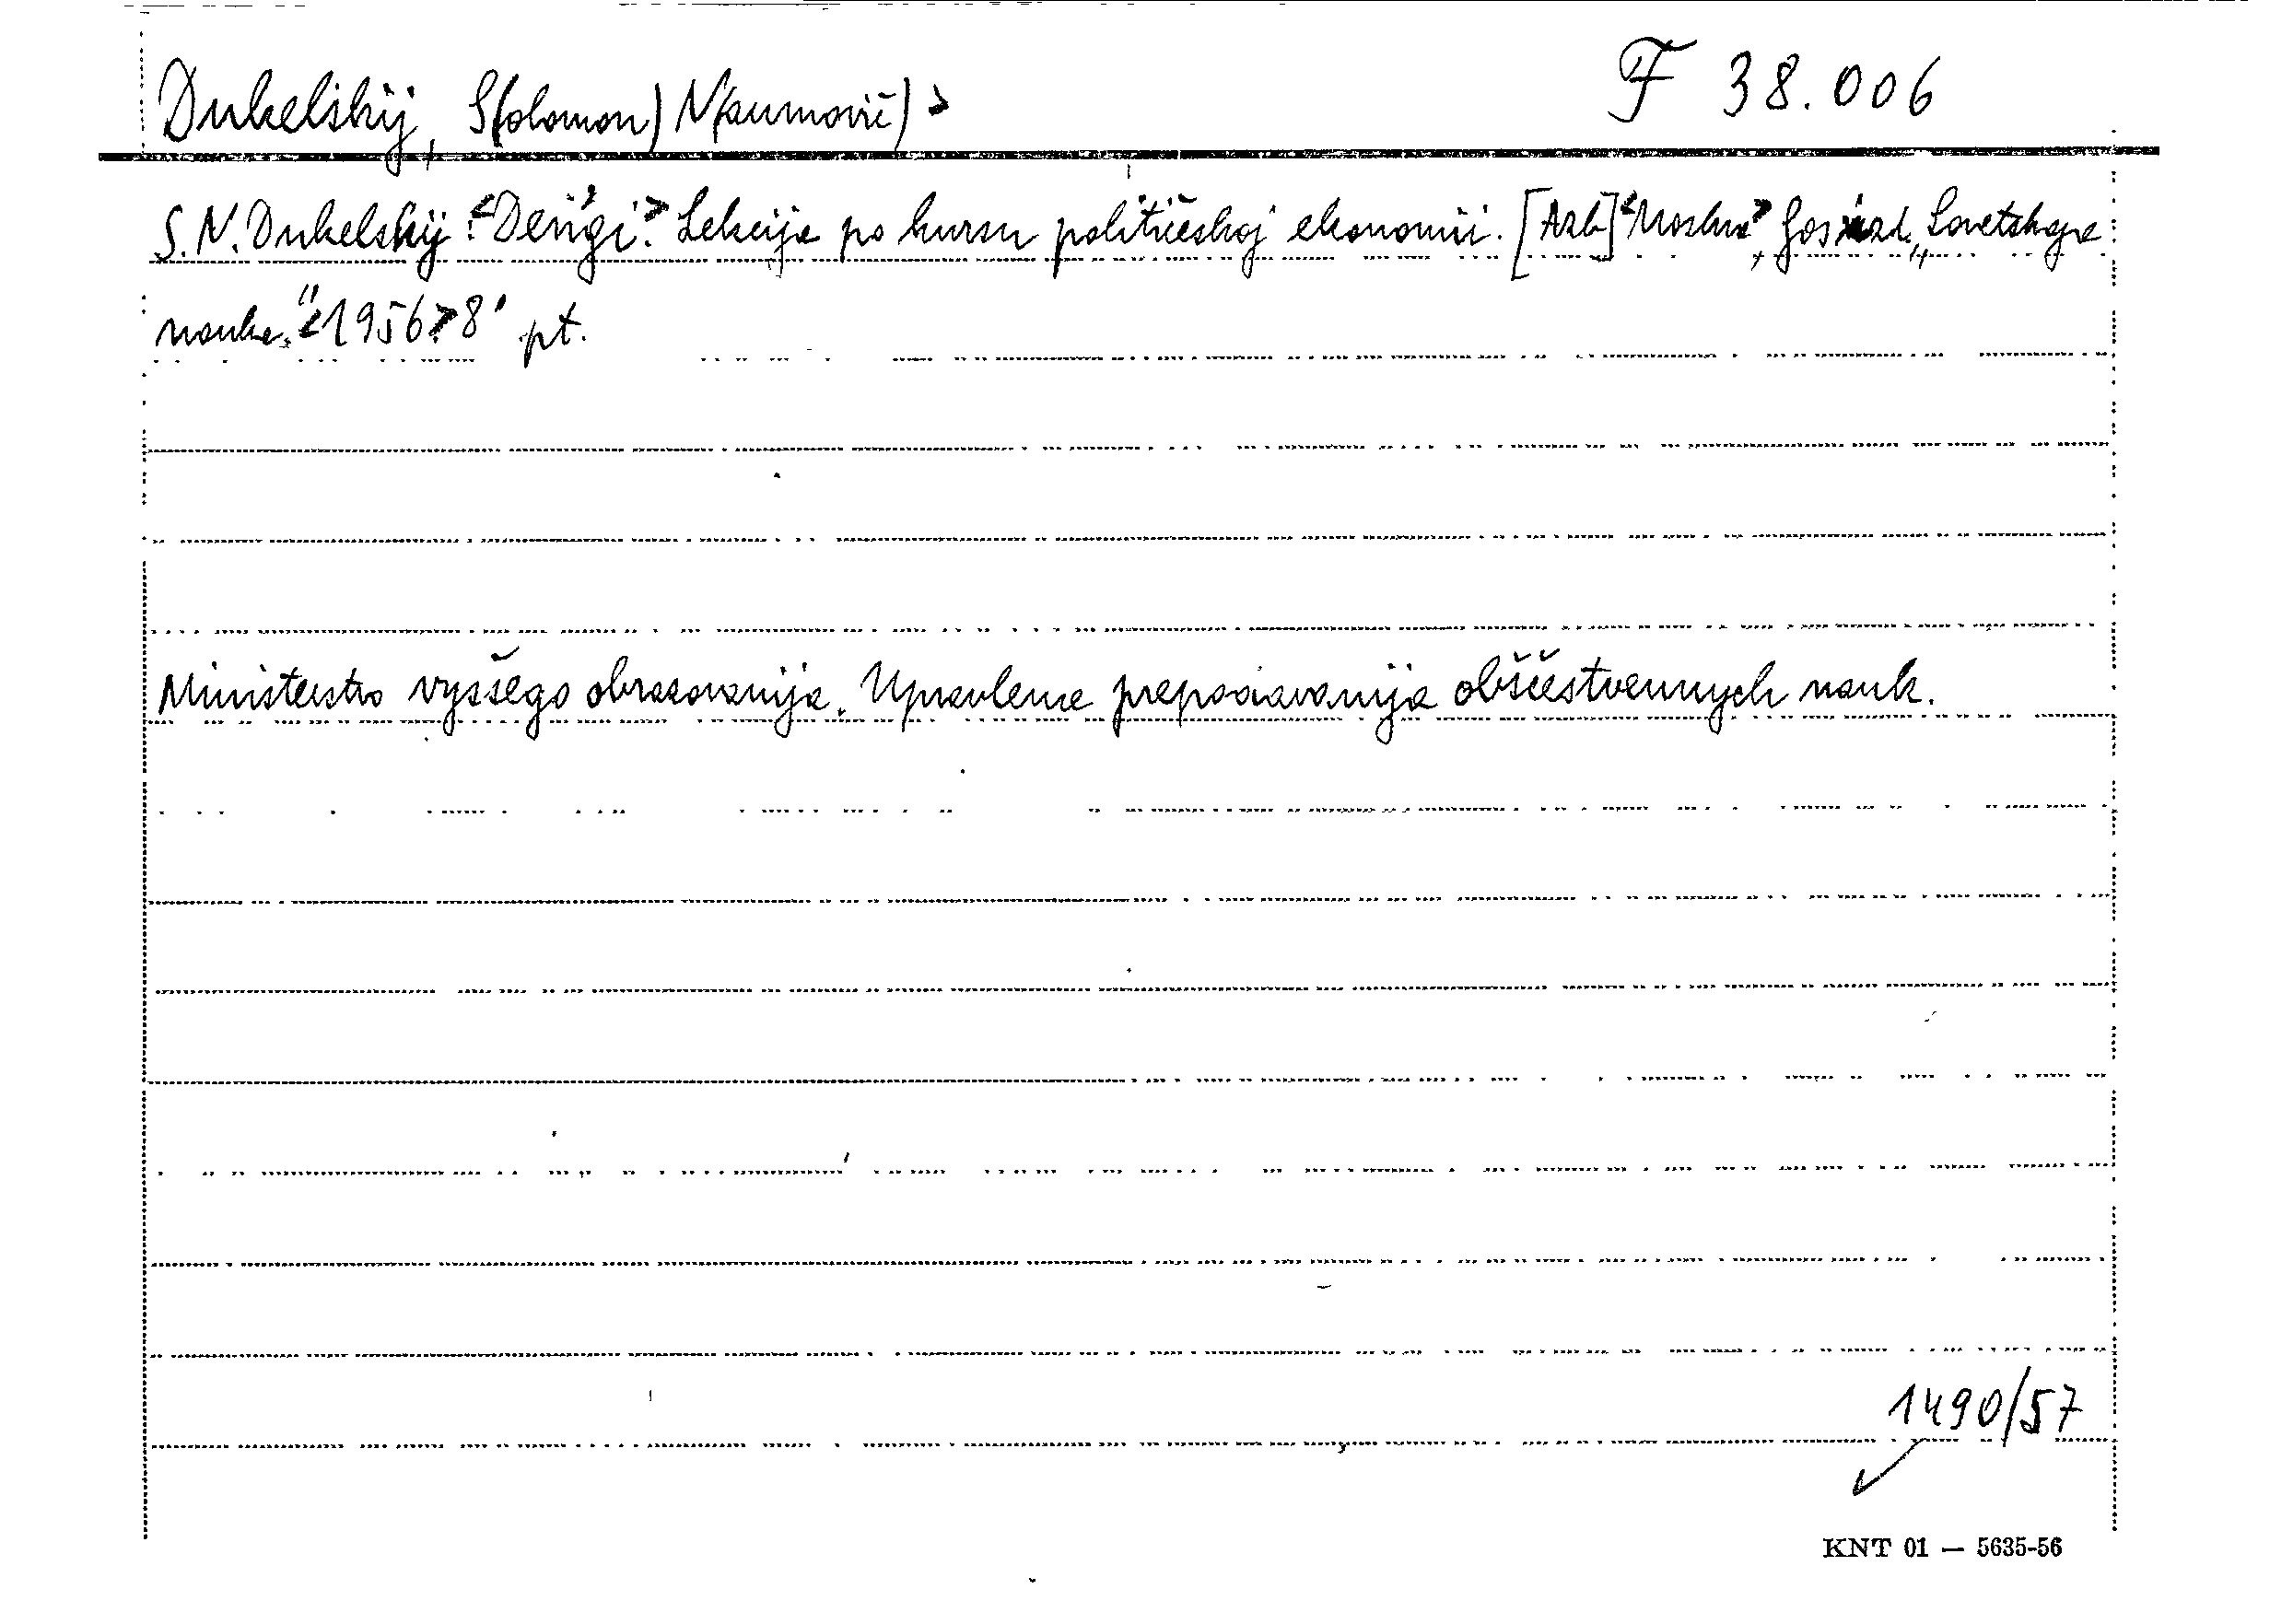 Dukelskij, S(olomon) N(aumovič) >
F 38.006
S. N. Dukelskij: <Deńgi.> Lekcija po kursu političeskoj ekonomii. [Azb] <Moskva>, Gos. izd. „Sovetskaja
nauka." <1956.> 8° pt.
Ministerstvo vysšego obrazovanija. Upravlenie prepodavanija obščestvennych nauk.
1490/57
KNT 01 — 5635-56